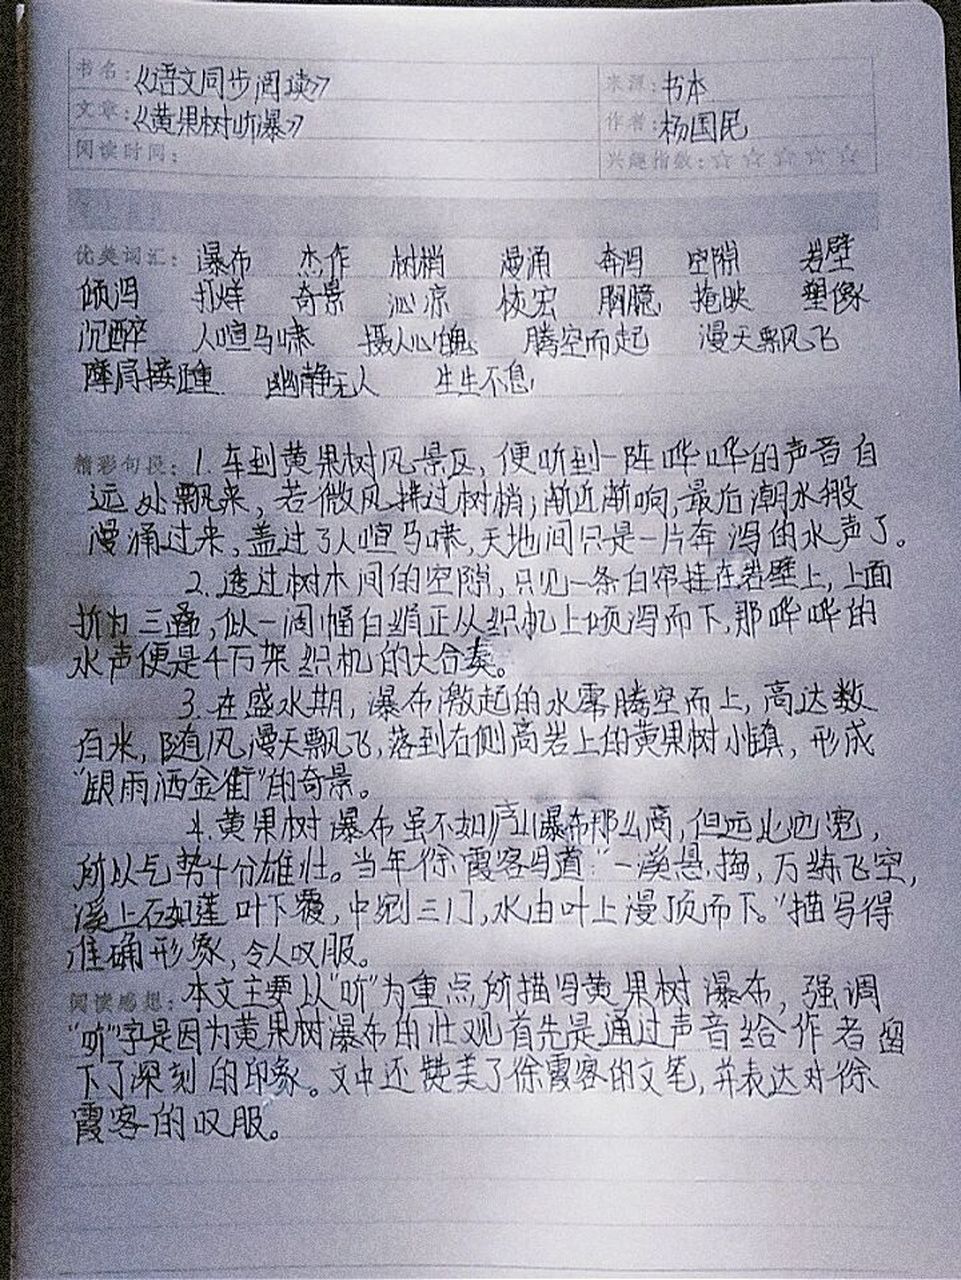 书名：《语文同步阅读》 来源：书本
文章：《黄果树听瀑》 作者：杨国民
阅读时间： 兴趣指数：☆☆☆☆☆
优美词汇： 瀑布 杰作 树梢 漫涌 奔泻 空隙 岩壁
倾泻 打烊 奇景 沁凉 恢宏 胸臆 掩映 塑像
沉醉 人喧马啸 摄人心魄 腾空而起 漫天飘飞
摩肩接踵 幽静无人 生生不息
精彩句段：1. 车到黄果树风景区，便听到一阵哗哗的声音自
远处飘来，若微风拂过树梢；渐近渐响，最后潮水般
漫涌过来，盖过了人喧马啸，天地间只是一片奔泻的水声了。
2. 透过树木间的空隙，只见一条白帘挂在岩壁上，上面
折为三叠，似一阔幅白绢正从织机上倾泻而下，那哗哗的
水声便是千万架织机的大合奏。
3. 在盛水期，瀑布激起的水雾腾空而上，高达数
百米，随风漫天飘飞，落到右侧高岩上的黄果树小镇，形成
“银雨洒金街”的奇景。
4. 黄果树瀑布虽不如庐山瀑布那么高，但远比它宽，
所以气势十分雄壮。当年徐霞客写道：“一溪悬捣，万练飞空，
溪上石如莲叶下覆，中剜三门，水由叶上漫顶而下。”描写得
准确形象，令人叹服。
阅读感想：本文主要以“听”为重点所描写黄果树瀑布，强调
“听”字是因为黄果树瀑布的壮观首先是通过声音给作者留
下了深刻的印象。文中还赞美了徐霞客的文笔，并表达对徐
霞客的叹服。